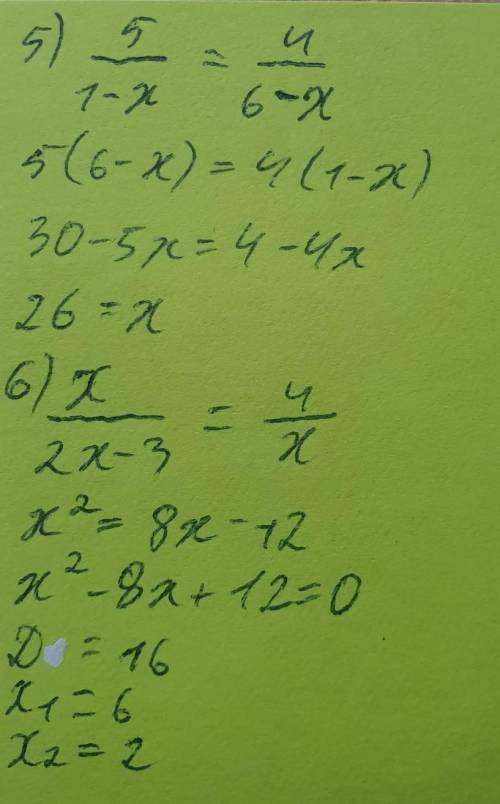 5) 5/(1-x) = 4/(6-x)
5(6-x)=4(1-x)
30-5x=4-4x
26=x
6) x/(2x-3) = 4/x
x²=8x-12
x²-8x+12=0
D=16
x₁=6
x₂=2